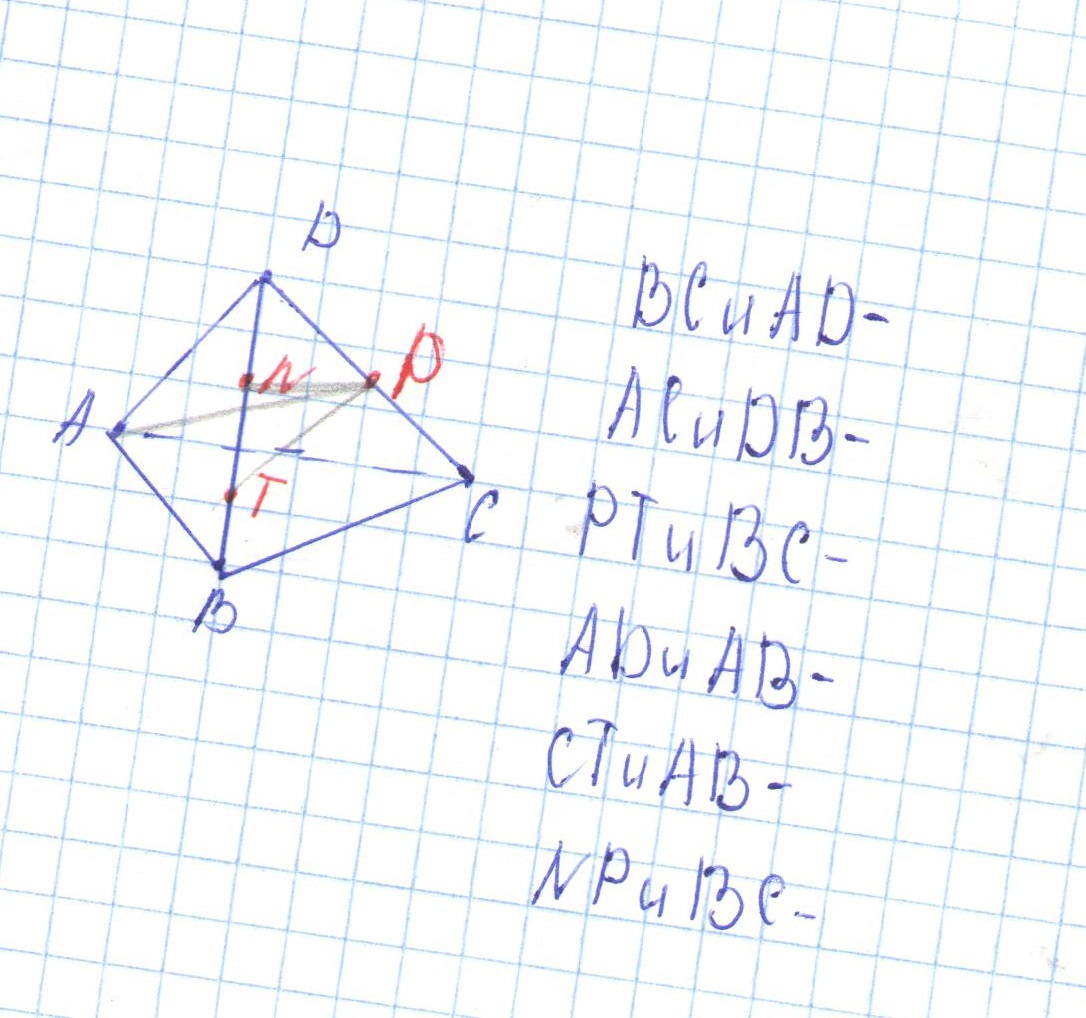 D
N P
A
T
C
B
BC и AD-
AC и DB-
PT и BC-
AD и AB-
CT и AB-
NP и BC-